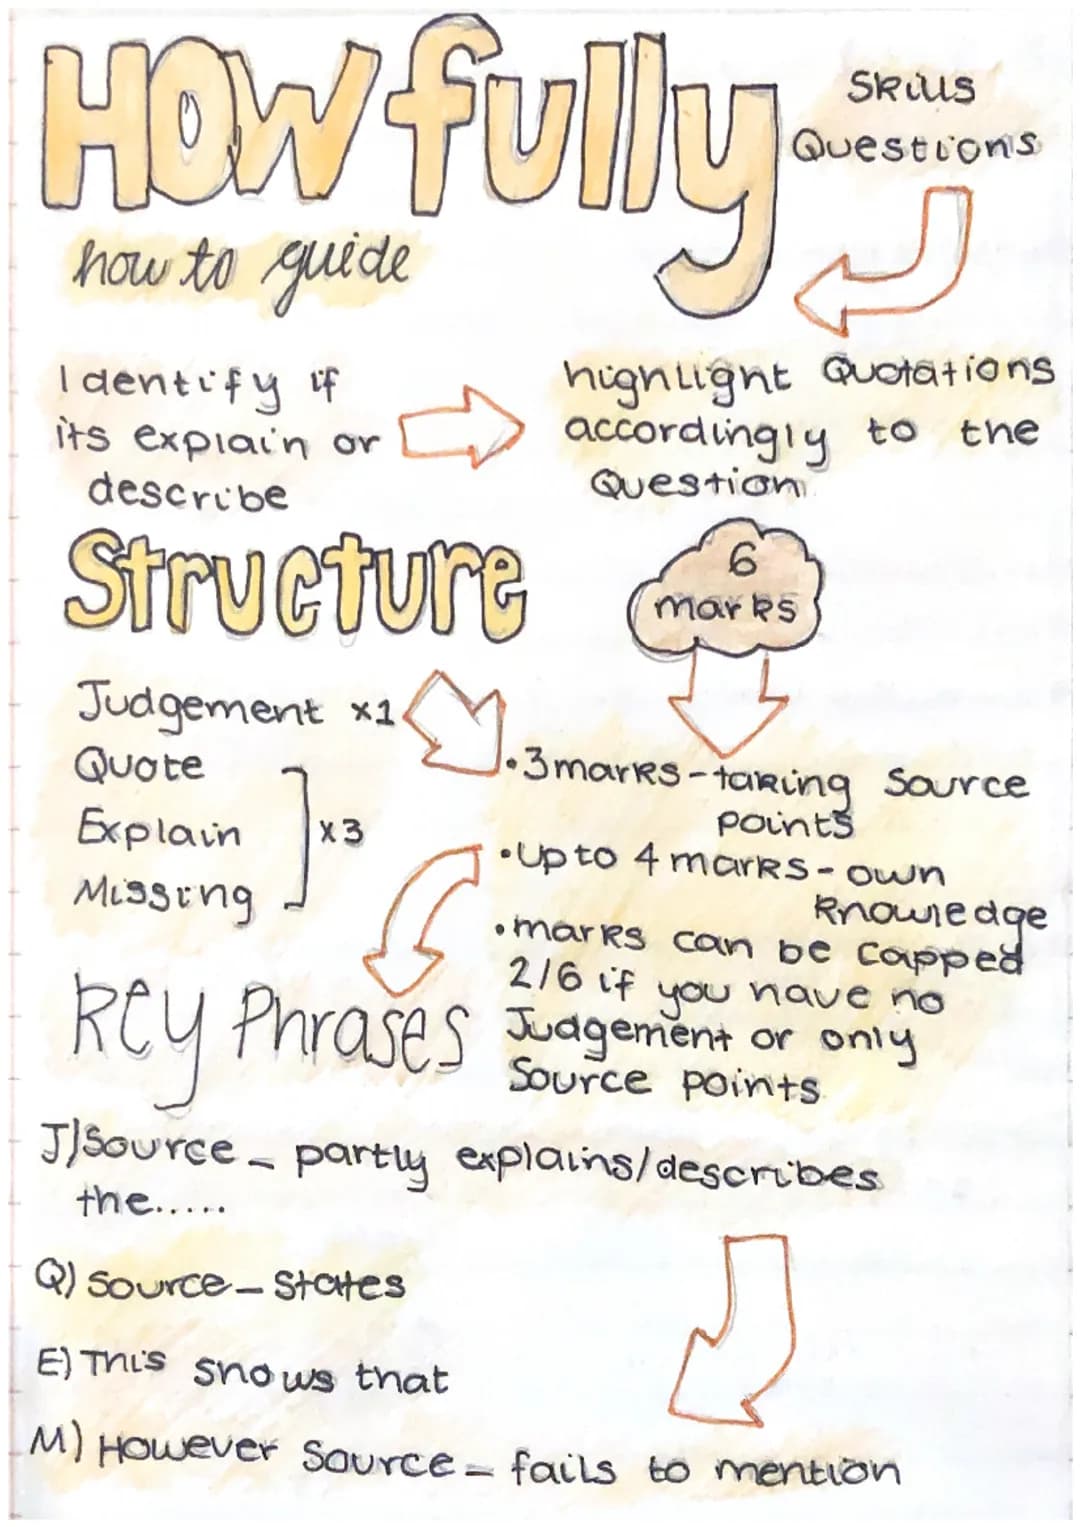 How fully
Skills
Questions
how to guide
Identify if
its explain or
describe
highlight Quotations
accordingly to the
Question
Structure
6
marks
Judgement x1
Quote
Explain
Missing
x3
•3marks-taking Source
points
•Up to 4 marks-own
knowledge
•marks can be capped
2/6 if you have no
Judgement or only
Source points
Key Phrases
J)Source_ partly explains/describes
the.....
Q) Source_ States
E) This shows that
M) However Source_ fails to mention